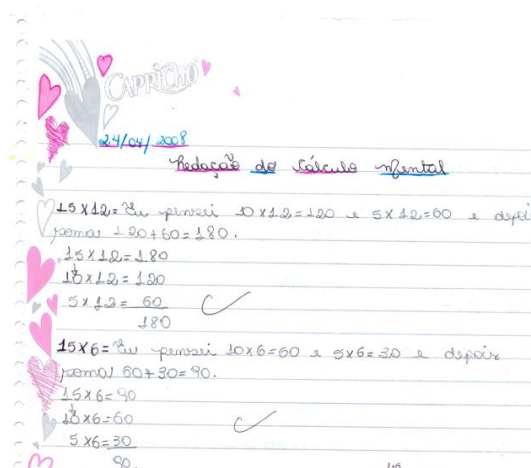 CAPRICHO
24/04/2008
Redação do Cálculo Mental
15x12= Eu pensei 10x12=120 e 5x12=60 e depoi
somei 120+60=180.
15x12=180
10x12=120
5x12= 60
180
15x6= Eu pensei 10x6=60 e 5x6=30 e depois
somei 60+30=90.
15x6=90
10x6=60
5x6=30
90.